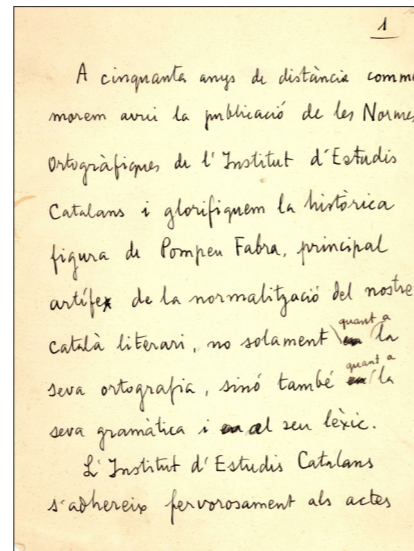 1
A cinquanta anys de distància comme
morem avui la publicació de les Normes
Ortogràfiques de l'Institut d'Estudis
Catalans i glorifiquem la històrica
figura de Pompeu Fabra, principal
artífex de la normalització del nostre
català literari, no solament quant a la
seva ortografia, sinó també quant a la
seva gramàtica i al seu lèxic.
L'Institut d'Estudis Catalans
s'adhereix fervorosament als actes